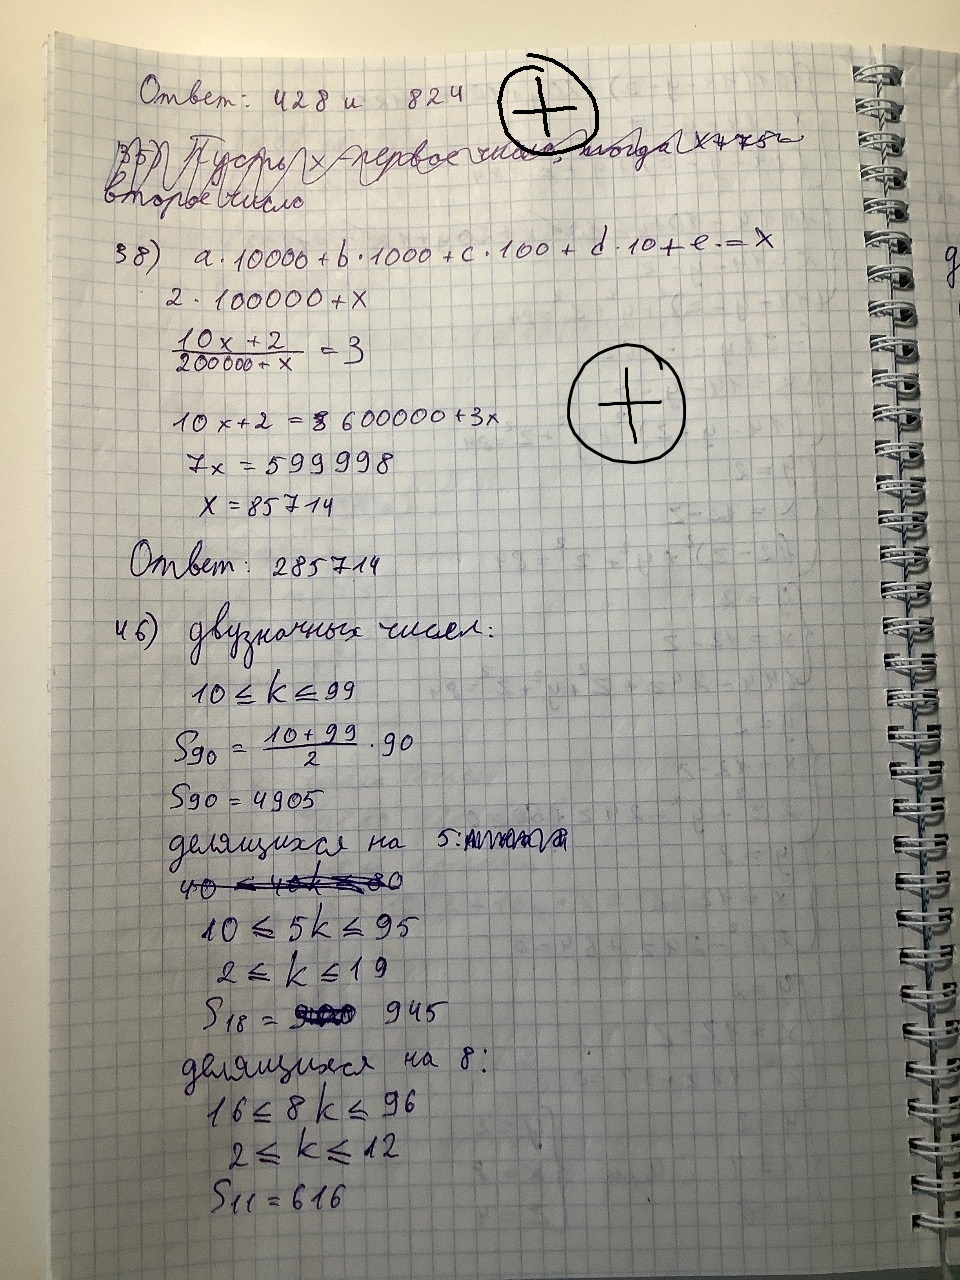 Ответ: 428 и 824
35) Пусть x - первое число, тогда x+75 -
второе число
38) a·10000+b·1000+c·100+d·10+e=x
2·100000+x
10x+2
200000+x = 3
10x+2 = 600000+3x
7x = 599998
x = 85714
Ответ: 285714
46) двузначных чисел:
10 ≤ k ≤ 99
S90 = 10+99 / 2 · 90
S90 = 4905
делящихся на 5:
40 ≤ 40k ≤ 80
10 ≤ 5k ≤ 95
2 ≤ k ≤ 19
S18 = 945
делящихся на 8:
16 ≤ 8k ≤ 96
2 ≤ k ≤ 12
S11 = 616